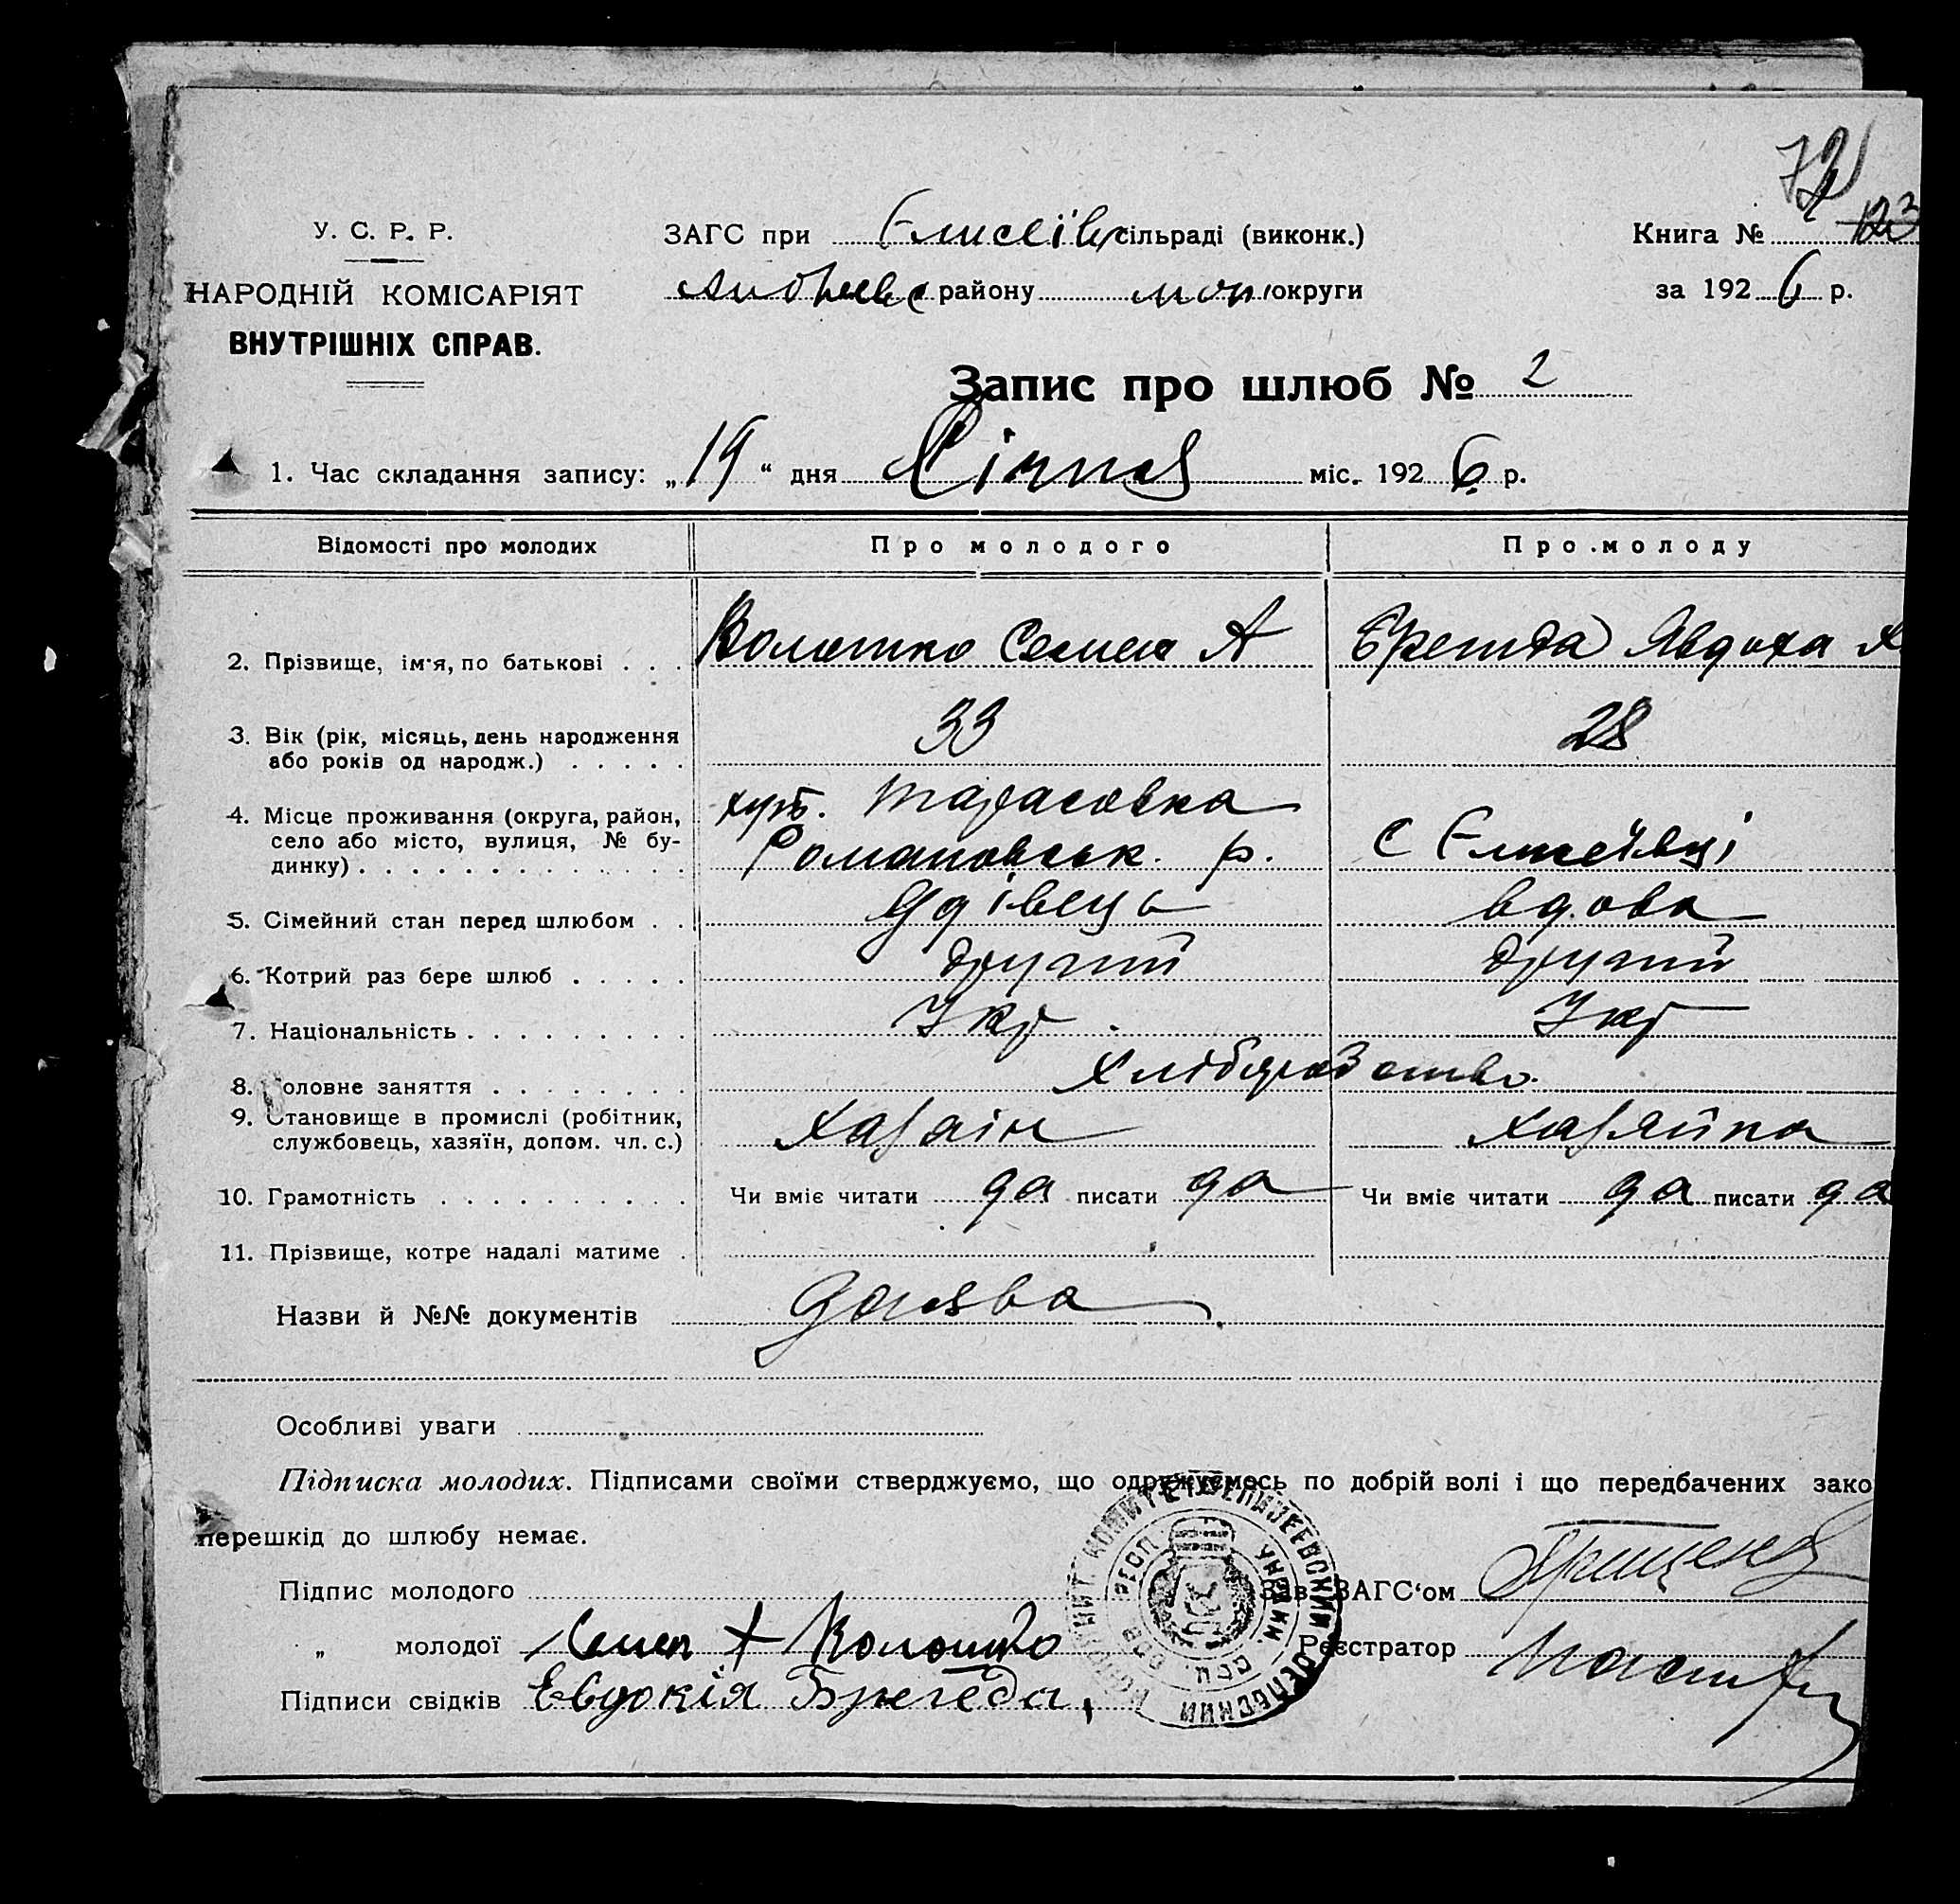 72
123
У. С. Р. Р.
ЗАГС при Єлисеїв сільраді (виконк.)
Книга №
НАРОДНІЙ КОМІСАРІЯТ
Андреевс району мел округи
за 1926 р.
ВНУТРІШНІХ СПРАВ.
Запис про шлюб № 2
1. Час складання запису: „19“ дня Січня міс. 1926 р.
Відомості про молодих
Про молодого
Про молоду
2. Прізвище, ім'я, по батькові . . .
Волошко Семен А
Брегеда Явдоха
3. Вік (рік, місяць, день народження
або років од народж.) . . . . .
33
28
4. Місце проживання (округа, район,
село або місто, вулиця, № бу-
динку) . . . . . . . . . . . . . .
хут. Тарасовка
Романовськ. р.
с Єлисеївці
5. Сімейний стан перед шлюбом . .
Удівець
вдова
6. Котрий раз бере шлюб . . . . .
другий
другий
7. Національність . . . . . . . . .
Укр
Укр
8. Головне заняття . . . . . . . .
Хлібороб
9. Становище в промислі (робітник,
службовець, хазяїн, допом. чл. с.)
Хазаін
Хазяйка
10. Грамотність . . . . . . . . . .
Чи вміє читати да писати да
Чи вміє читати да писати да
11. Прізвище, котре надалі матиме .
Назви й №№ документів
Заява
Особливі уваги
Підписка молодих. Підписами своїми стверджуємо, що одружуємось по добрій волі і що передбачених зако
перешкід до шлюбу немає.
Підпис молодого
Зав. ЗАГС'ом Грищенко
„ молодої Семен + Волошко
Реєстратор
Підписи свідків Евдокія Брегеда,